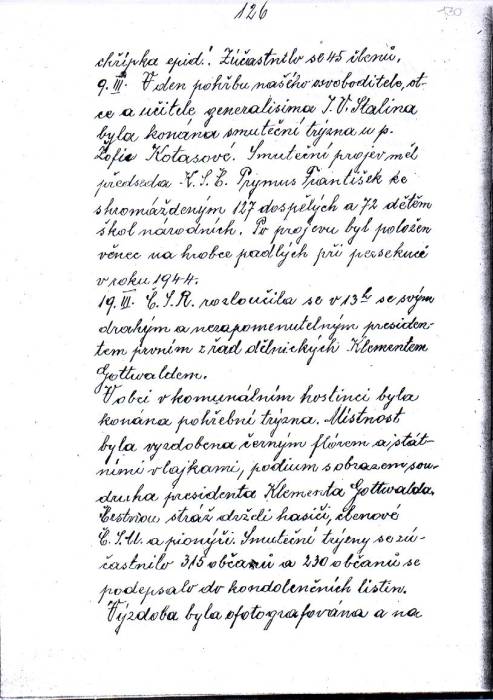 126
130
chřipka epid. Zúčastnilo se 45 členů.
9. III. V den pohřbu našeho osvoboditele, ot-
ce a učitele generalisima J. V. Stalina
byla konána smuteční tryzna u p.
Žofie Kotasové. Smuteční projev měl
předseda K.S.Č. Prymus František ke
shromážděným 127 dospělých a 72 dětem
škol národních. Po projevu byl položen
věnec na hrobce padlých při persekuci
v roku 1944.
19. III. Č.S.R. rozloučila se v 13h se svým
drahým a nezapomenutelným presiden-
tem prvním z řad dělnických Klementem
Gottwaldem.
V obci v komunálním hostinci byla
konána pohřební tryzna. Místnost
byla vyzdobena černým flórem a stát-
ními vlajkami, podium s obrazem sou-
druha presidenta Klementa Gottwalda.
Čestnou stráž drželi hasiči, členové
Č.S.M. a pionýři. Smuteční tryzny se zú-
častnilo 315 občanů a 230 občanů se
podepsalo do kondolenčních listin.
Výzdoba byla ofotografována a na